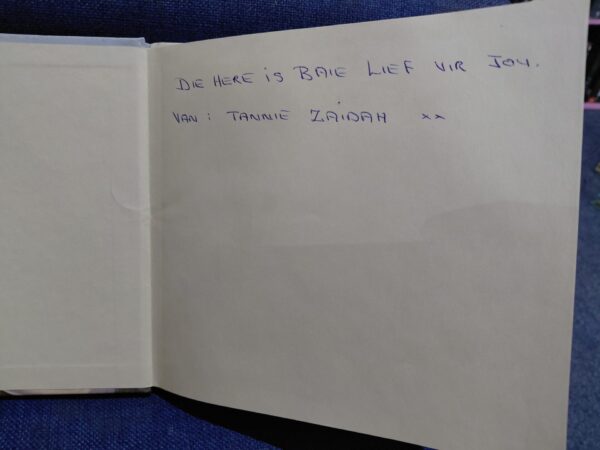 DIE HERE is BAIE LIEF VIR JOU.
VAN: TANNIE ZAIDAH xx